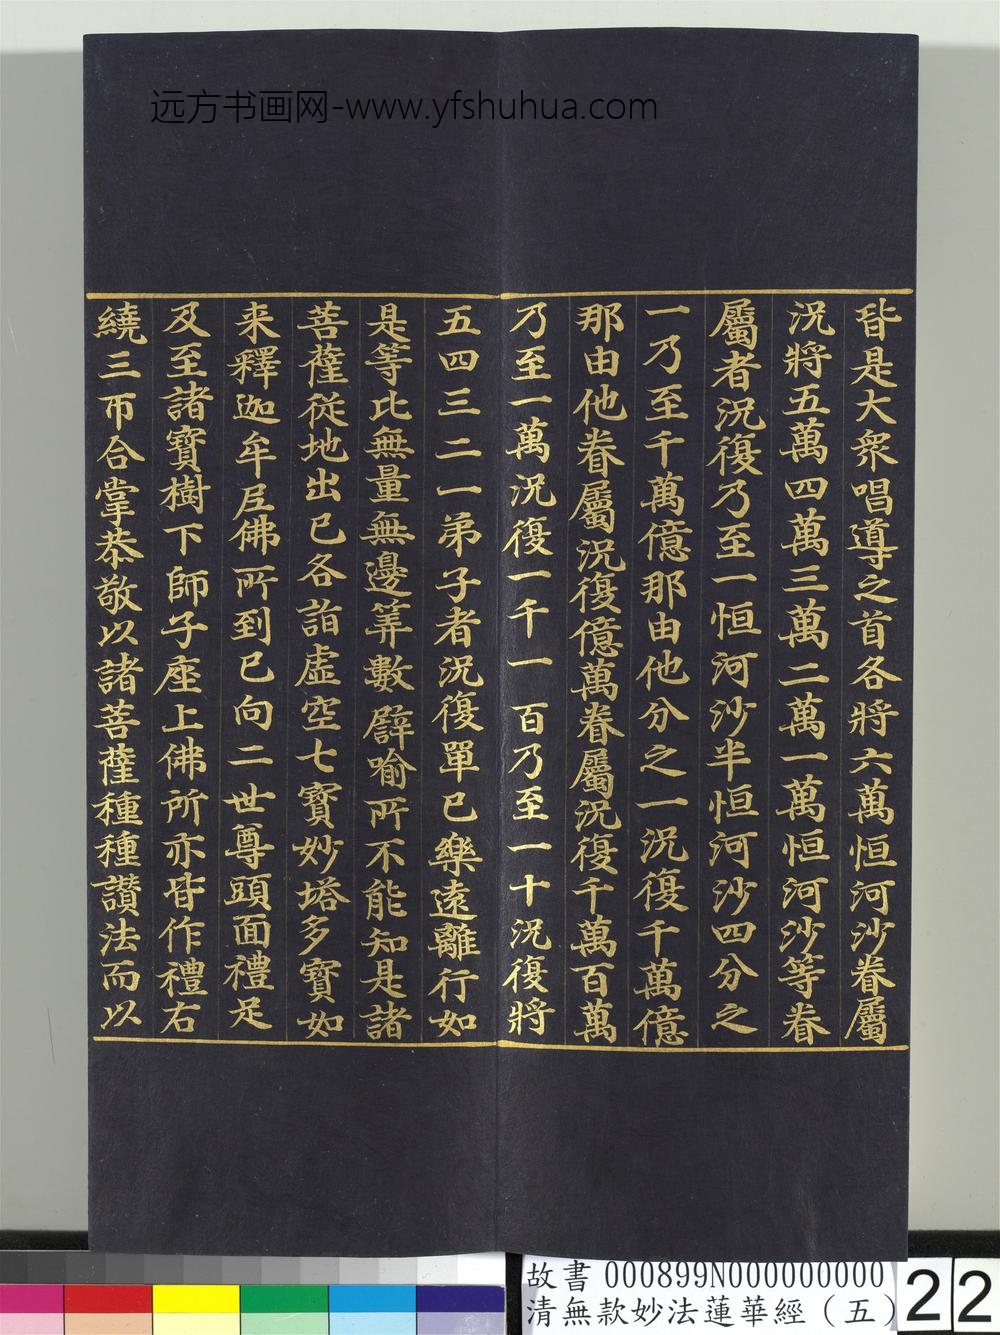 远方书画网-www.yfshuhua.com
皆是大衆唱導之首各將六萬恒河沙眷屬
況將五萬四萬三萬二萬一萬恒河沙等眷
屬者況復乃至一恒河沙半恒河沙四分之
一乃至千萬億那由他分之一況復千萬億
那由他眷屬況復億萬眷屬況復千萬百萬
乃至一萬況復一千一百乃至一十況復將
五四三二一弟子者況復單已樂遠離行如
是等比無量無邊筭數譬喻所不能知是諸
菩薩從地出已各詣虛空七寶妙塔多寶如
来釋迦牟尼佛所到已向二世尊頭面禮足
及至諸寶樹下師子座上佛所亦皆作禮右
繞三帀合掌恭敬以諸菩薩種種讚法而以
故書 000899N000000000
清無款妙法蓮華經（五）
22